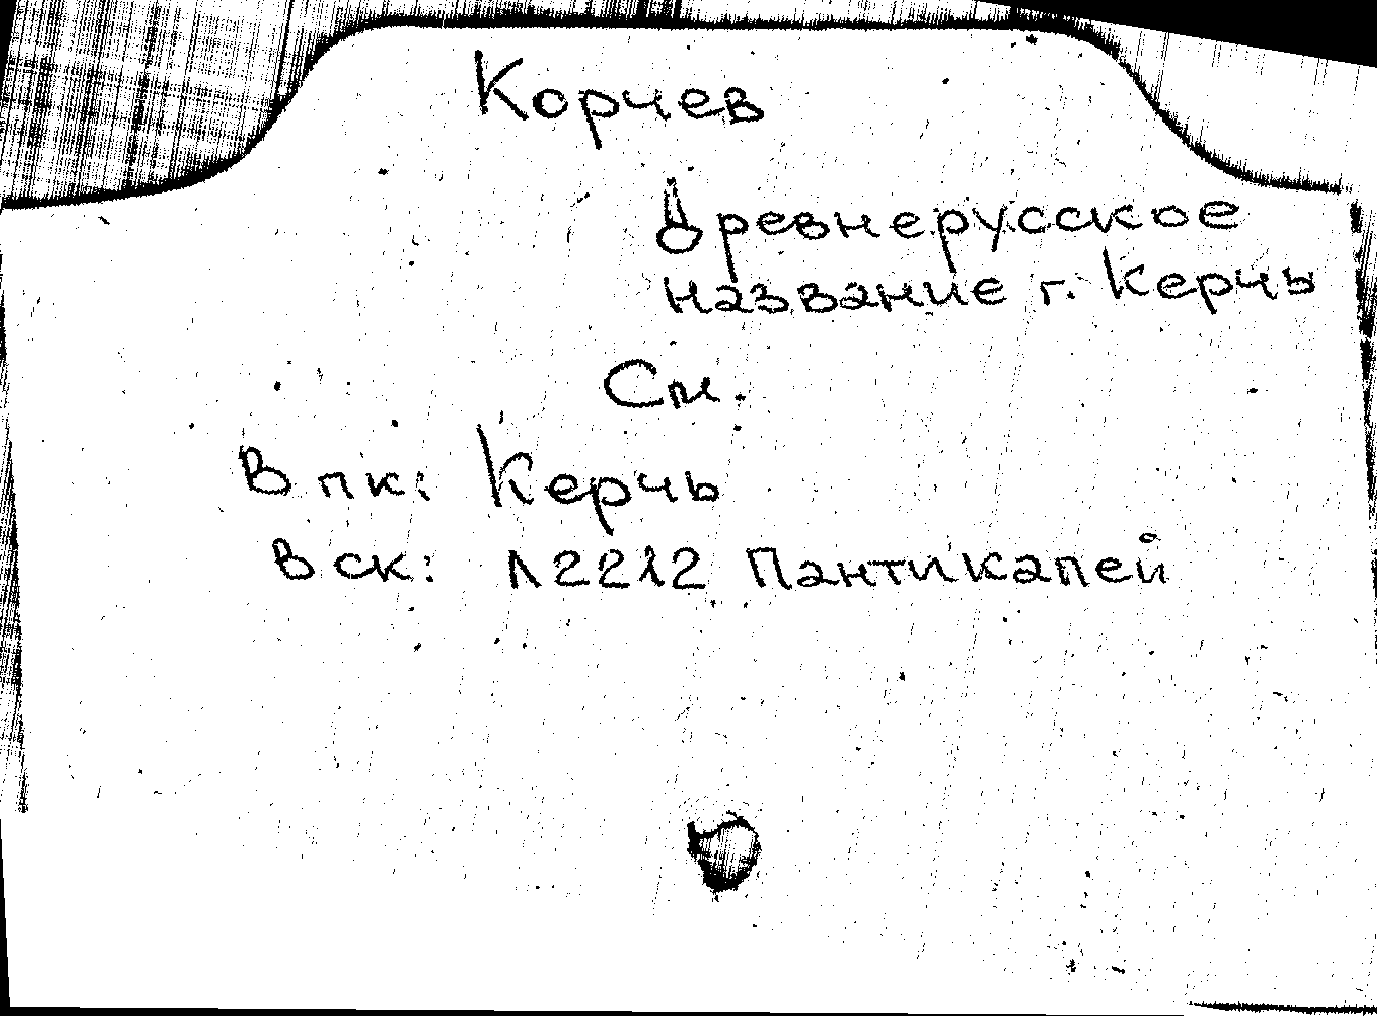 Корчев
Древнерусское
название г. Керчь
См.
В пк: Керчь
В ск: Л2212 Пантикапей